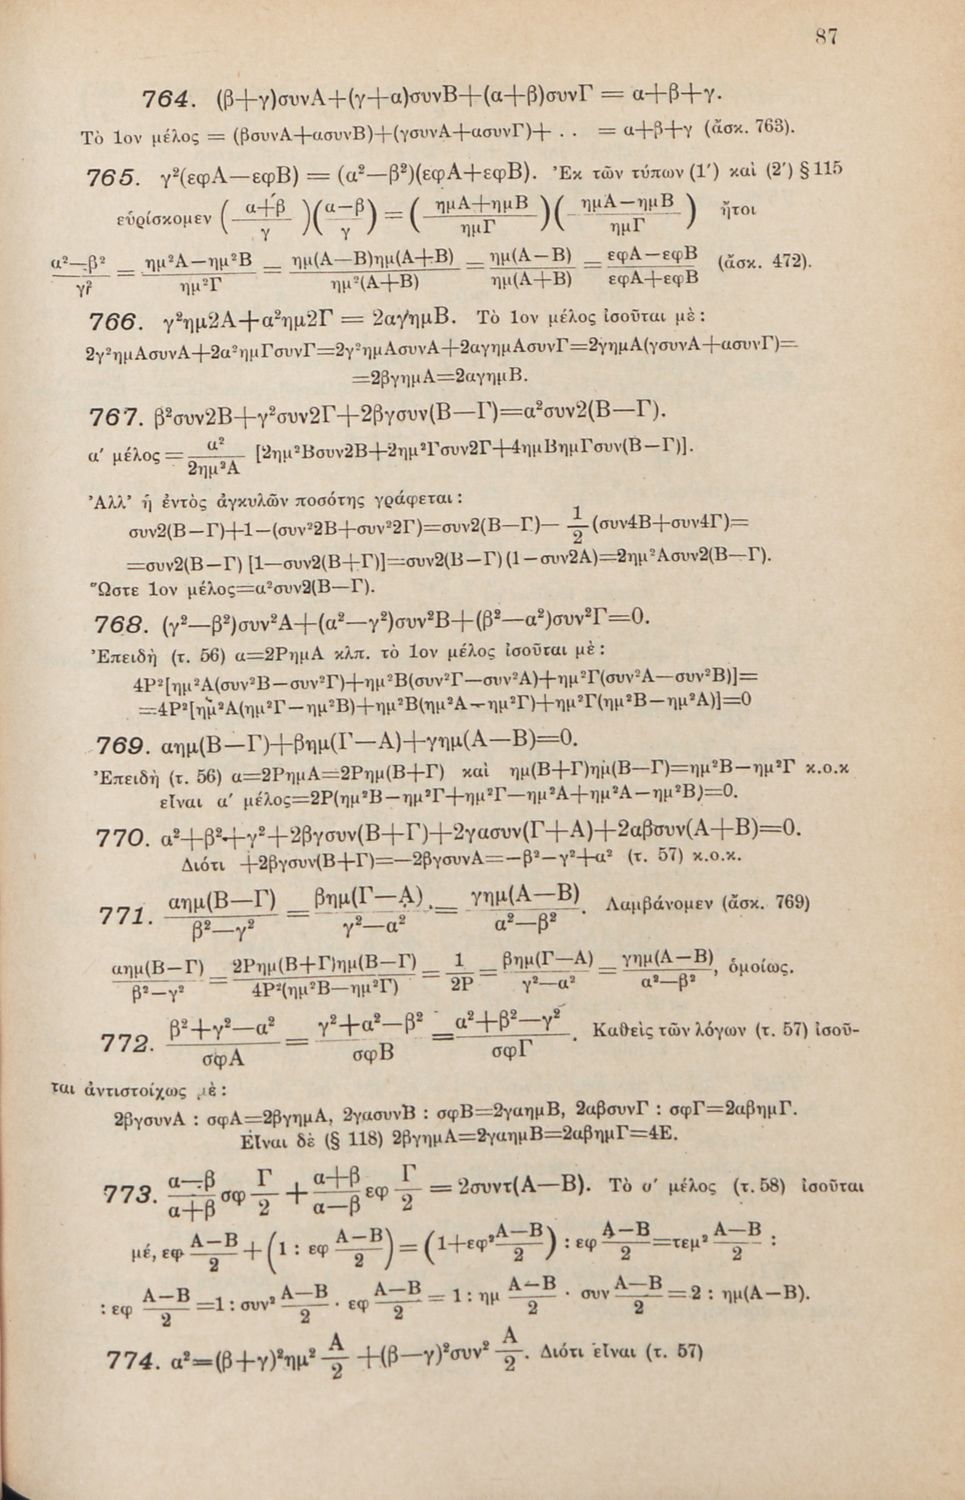 87
764. (β+γ)συνΑ+(γ+α)συνΒ+(α+β)συνΓ = α+β+γ.
Τὸ 1ον μέλος = (βσυνΑ+ασυνΒ)+(γσυνΑ+ασυνΓ)+ . . = α+β+γ (ἄσκ. 763).
765. γ²(εφΑ—εφΒ) = (α²—β²)(εφΑ+εφΒ). Ἐκ τῶν τύπων (1′) καὶ (2′) § 115
εὑρίσκομεν ( (α+β)/γ )( (α—β)/γ ) = ( (ημΑ+ημΒ)/ημΓ )( (ημΑ—ημΒ)/ημΓ ) ἤτοι
(α²—β²)/γ² = (ημ²Α—ημ²Β)/ημ²Γ = ημ(Α—Β)ημ(Α+Β)/ημ²(Α+Β) = ημ(Α—Β)/ημ(Α+Β) = (εφΑ—εφΒ)/(εφΑ+εφΒ) (ἄσκ. 472).
766. γ²ημ2Α+α²ημ2Γ = 2αγημΒ. Τὸ 1ον μέλος ἰσοῦται μὲ:
2γ²ημΑσυνΑ+2α²ημΓσυνΓ=2γ²ημΑσυνΑ+2αγημΑσυνΓ=2γημΑ(γσυνΑ+ασυνΓ)=
=2βγημΑ=2αγημΒ.
767. β²συν2Β+γ²συν2Γ+2βγσυν(Β—Γ)=α²συν2(Β—Γ).
α′ μέλος = α²/2ημ²Α [2ημ²Βσυν2Β+2ημ²Γσυν2Γ+4ημΒημΓσυν(Β—Γ)].
Ἀλλ᾽ ἡ ἐντὸς ἀγκυλῶν ποσότης γράφεται:
συν2(Β—Γ)+1—(συν²2Β+συν²2Γ)=συν2(Β—Γ)— 1/2 (συν4Β+συν4Γ)=
=συν2(Β—Γ) [1—συν2(Β+Γ)]=συν2(Β—Γ) (1—συν2Α)=2ημ²Ασυν2(Β—Γ).
Ὥστε 1ον μέλος=α²συν2(Β—Γ).
768. (γ²—β²)συν²Α+(α²—γ²)συν²Β+(β²—α²)συν²Γ=0.
Ἐπειδὴ (τ. 56) α=2ΡημΑ κλπ. τὸ 1ον μέλος ἰσοῦται μὲ:
4Ρ²[ημ²Α(συν²Β—συν²Γ)+ημ²Β(συν²Γ—συν²Α)+ημ²Γ(συν²Α—συν²Β)]=
=4Ρ²[ημ²Α(ημ²Γ—ημ²Β)+ημ²Β(ημ²Α—ημ²Γ)+ημ²Γ(ημ²Β—ημ²Α)]=0
769. αημ(Β—Γ)+βημ(Γ—Α)+γημ(Α—Β)=0.
Ἐπειδὴ (τ. 56) α=2ΡημΑ=2Ρημ(Β+Γ) καὶ ημ(Β+Γ)ημ(Β—Γ)=ημ²Β—ημ²Γ κ.ο.κ
εἶναι α′ μέλος=2Ρ(ημ²Β—ημ²Γ+ημ²Γ—ημ²Α+ημ²Α—ημ²Β)=0.
770. α²+β²+γ²+2βγσυν(Β+Γ)+2γασυν(Γ+Α)+2αβσυν(Α+Β)=0.
Διότι +2βγσυν(Β+Γ)=—2βγσυνΑ=—β²—γ²+α² (τ. 57) κ.ο.κ.
771. αημ(Β—Γ)/(β²—γ²) = βημ(Γ—Α)/(γ²—α²) = γημ(Α—Β)/(α²—β²). Λαμβάνομεν (ἄσκ. 769)
αημ(Β—Γ)/(β²—γ²) = 2Ρημ(Β+Γ)ημ(Β—Γ)/4Ρ²(ημ²Β—ημ²Γ) = 1/2Ρ = βημ(Γ—Α)/(γ²—α²) = γημ(Α—Β)/(α²—β²), ὁμοίως.
772. (β²+γ²—α²)/σφΑ = (γ²+α²—β²)/σφΒ = (α²+β²—γ²)/σφΓ. Καθεὶς τῶν λόγων (τ. 57) ἰσοῦ-
ται ἀντιστοίχως μὲ:
2βγσυνΑ : σφΑ=2βγημΑ, 2γασυνΒ : σφΒ=2γαημΒ, 2αβσυνΓ : σφΓ=2αβημΓ.
Εἶναι δὲ (§ 118) 2βγημΑ=2γαημΒ=2αβημΓ=4Ε.
773. (α—β)/(α+β) σφ Γ/2 + (α+β)/(α—β) εφ Γ/2 = 2συντ(Α—Β). Τὸ α′ μέλος (τ. 58) ἰσοῦται
μέ, εφ (Α—Β)/2 + (1 : εφ (Α—Β)/2) = (1+εφ² (Α—Β)/2) : εφ (Α—Β)/2 = τεμ² (Α—Β)/2 :
: εφ (Α—Β)/2 =1 : συν² (Α—Β)/2 · εφ (Α—Β)/2 = 1 : ημ (Α—Β)/2 · συν (Α—Β)/2 = 2 : ημ(Α—Β).
774. α²=(β+γ)²ημ² Α/2 +(β—γ)²συν² Α/2. Διότι εἶναι (τ. 57)